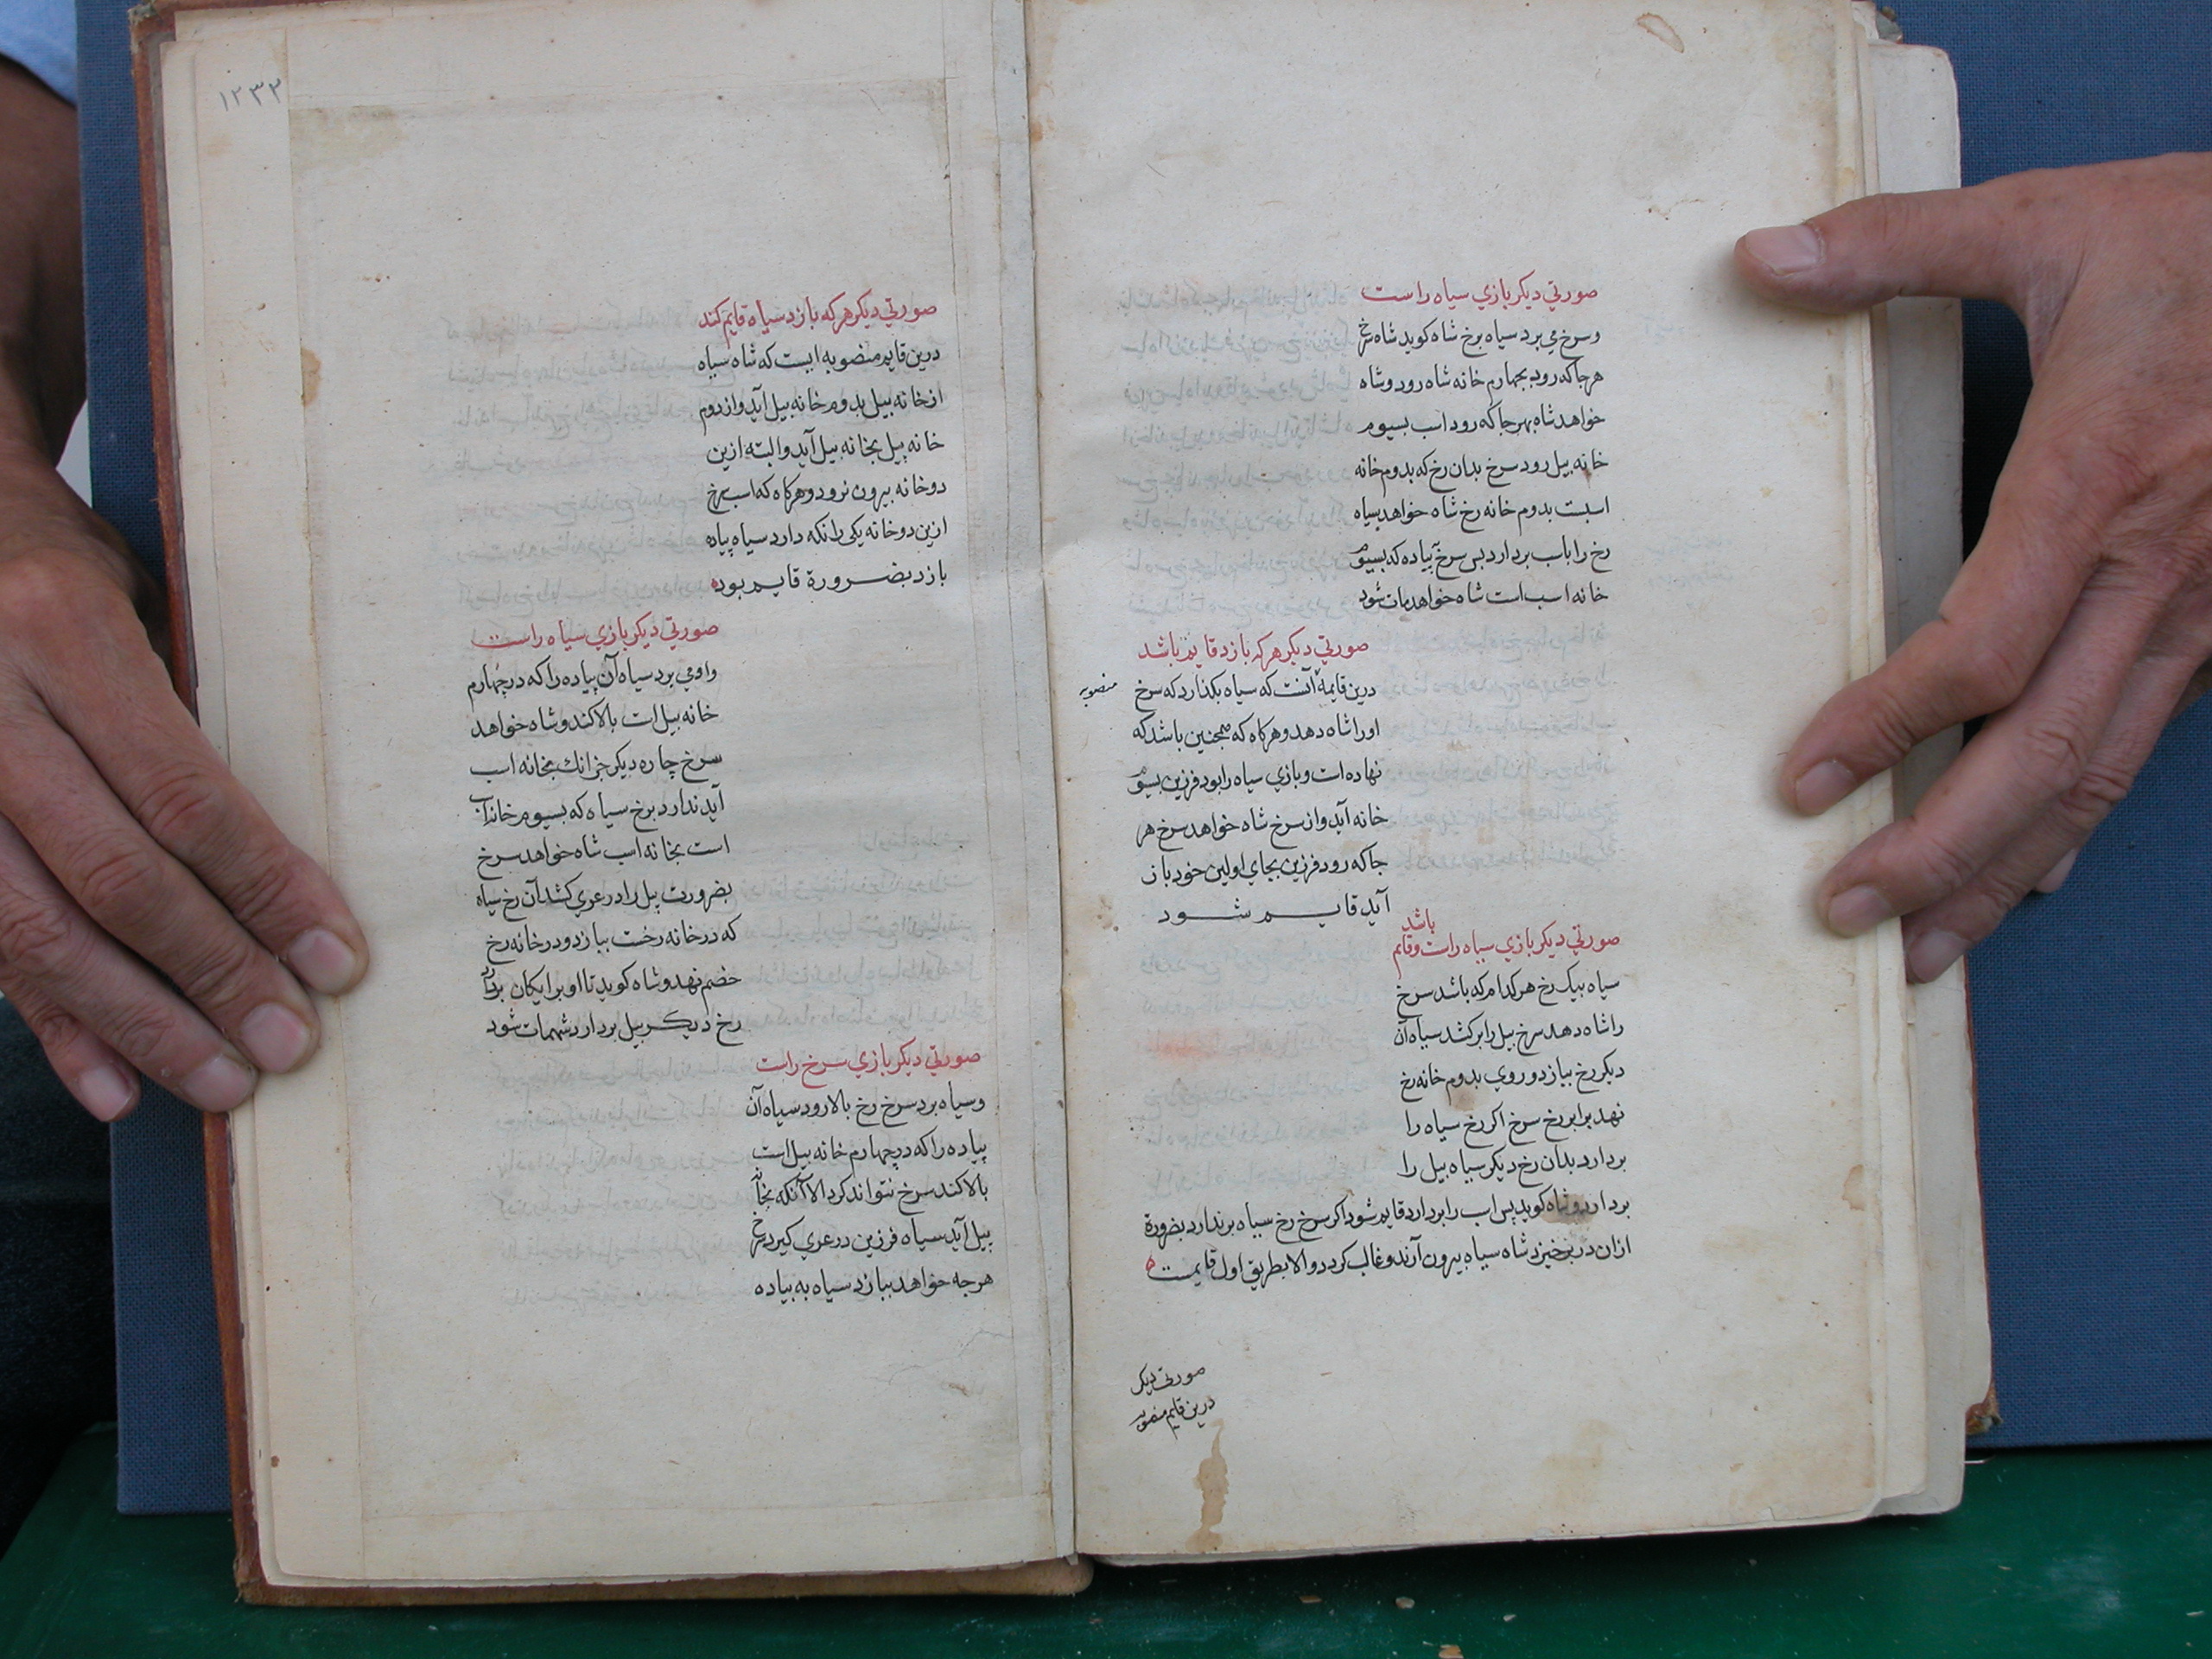 صورتي ديكر بازي سياه راست
و سرخ مي برد سياه برخ شاه كويد شاه سرخ
هرجا كه رود بجهارم خانه شاه رود و شاه
خواهد شاه بهرجا كه رود اسب بسيوم
خانه بيل رود سرخ بدان رخ كه بدوم خانه
اسبست بدوم خانه رخ شاه خواهد سياه
رخ را باسب بردارد بس سرخ بياده كه بسيوم
خانه اسب است شاه خواهد مات شود
صورتي ديكر هركه بازد قايم باشد
درين قايمه آنست كه سياه بكذارد كه سرخ
منصوبه
اورا شاه دهد و هركاه كه همجنين باشد كه
نهاده است و بازي سياه را بود فرزين بسيوم
خانه آيد و از سرخ شاه خواهد سرخ هر
جا كه رود فرزين بجاي اولين خود باز
آيد قايم شود
باشد
صورتي ديكر بازي سياه راست و قايم
سياه بيك رخ هركدام كه باشد سرخ
را شاه دهد سرخ بيل را بركشد سياه آن
ديكر رخ ببازد و روي بدوم خانه رخ
نهد برابر رخ سرخ اكر رخ سياه را
بردارد بدان رخ ديكر سياه بيل را
بردارد و شاه كويد پس اسب را بردارد قايم شود اكر سرخ رخ سياه برندارد بضرورة
ازان در برخيزد شاه سياه بيرون آرند و غالب كردد والا بطريق اول قايمست
صورتي ديكر
درين قايم منصوبه
١٢٣٢
صورتي ديكر هركه بازد سياه قايم كند
درين قايم منصوبه ايست كه شاه سياه
از خانه بيل بدوم خانه بيل آيد و از دوم
خانه پيل بخانه بيل آيد و البته ازين
دو خانه بيرون نرود و هركاه كه اسب سرخ
ازين دو خانه يكي را نكه دارد سياه پياده
بازد بضرورة قايم بود
صورتي ديكر بازي سياه راست
و او مي برد سياه آن پياده را كه در چهارم
خانه بيل است بالا كند و شاه خواهد
سرخ چاره ديكر جز انك بخانه اسب
آيد ندارد برخ سياه كه بسيوم خانه اسب
است بخانه اسب شاه خواهد سرخ
بضرورت پيل را در عري كشد آن رخ سياه
كه در خانه رخست ببازد و در خانه رخ
خصم نهد و شاه كويد تا او برايكان بردارد
رخ ديكر بيل بردارد شهمات شود
صورتي ديكر بازي سرخ راست
و سياه برد سرخ رخ بالا رود سياه آن
پياده را كه در چهارم خانه بيل است
بالا كند سرخ نتواند كرد الا آنكه بخانه
بيل آيد سياه فرزين در عري كيرد سرخ
هرچه خواهد ببازد سياه به بياده